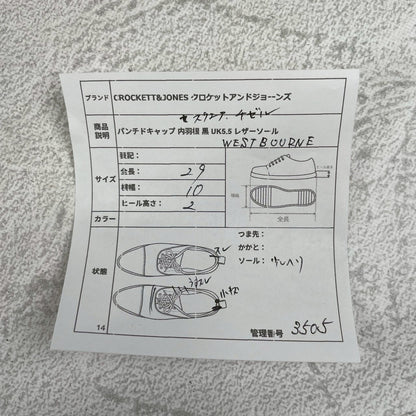 ブランド CROCKETT&JONES クロケットアンドジョーンズ
商品説明 パンチドキャップ 内羽根 黒 UK5.5 レザーソール
WESTBOURNE
サイズ
表記：
全長： 29
横幅： 10
ヒール高さ： 2
全長
カラー
状態
つま先：
かかと：
ソール：
スレ
14
管理番号 3505